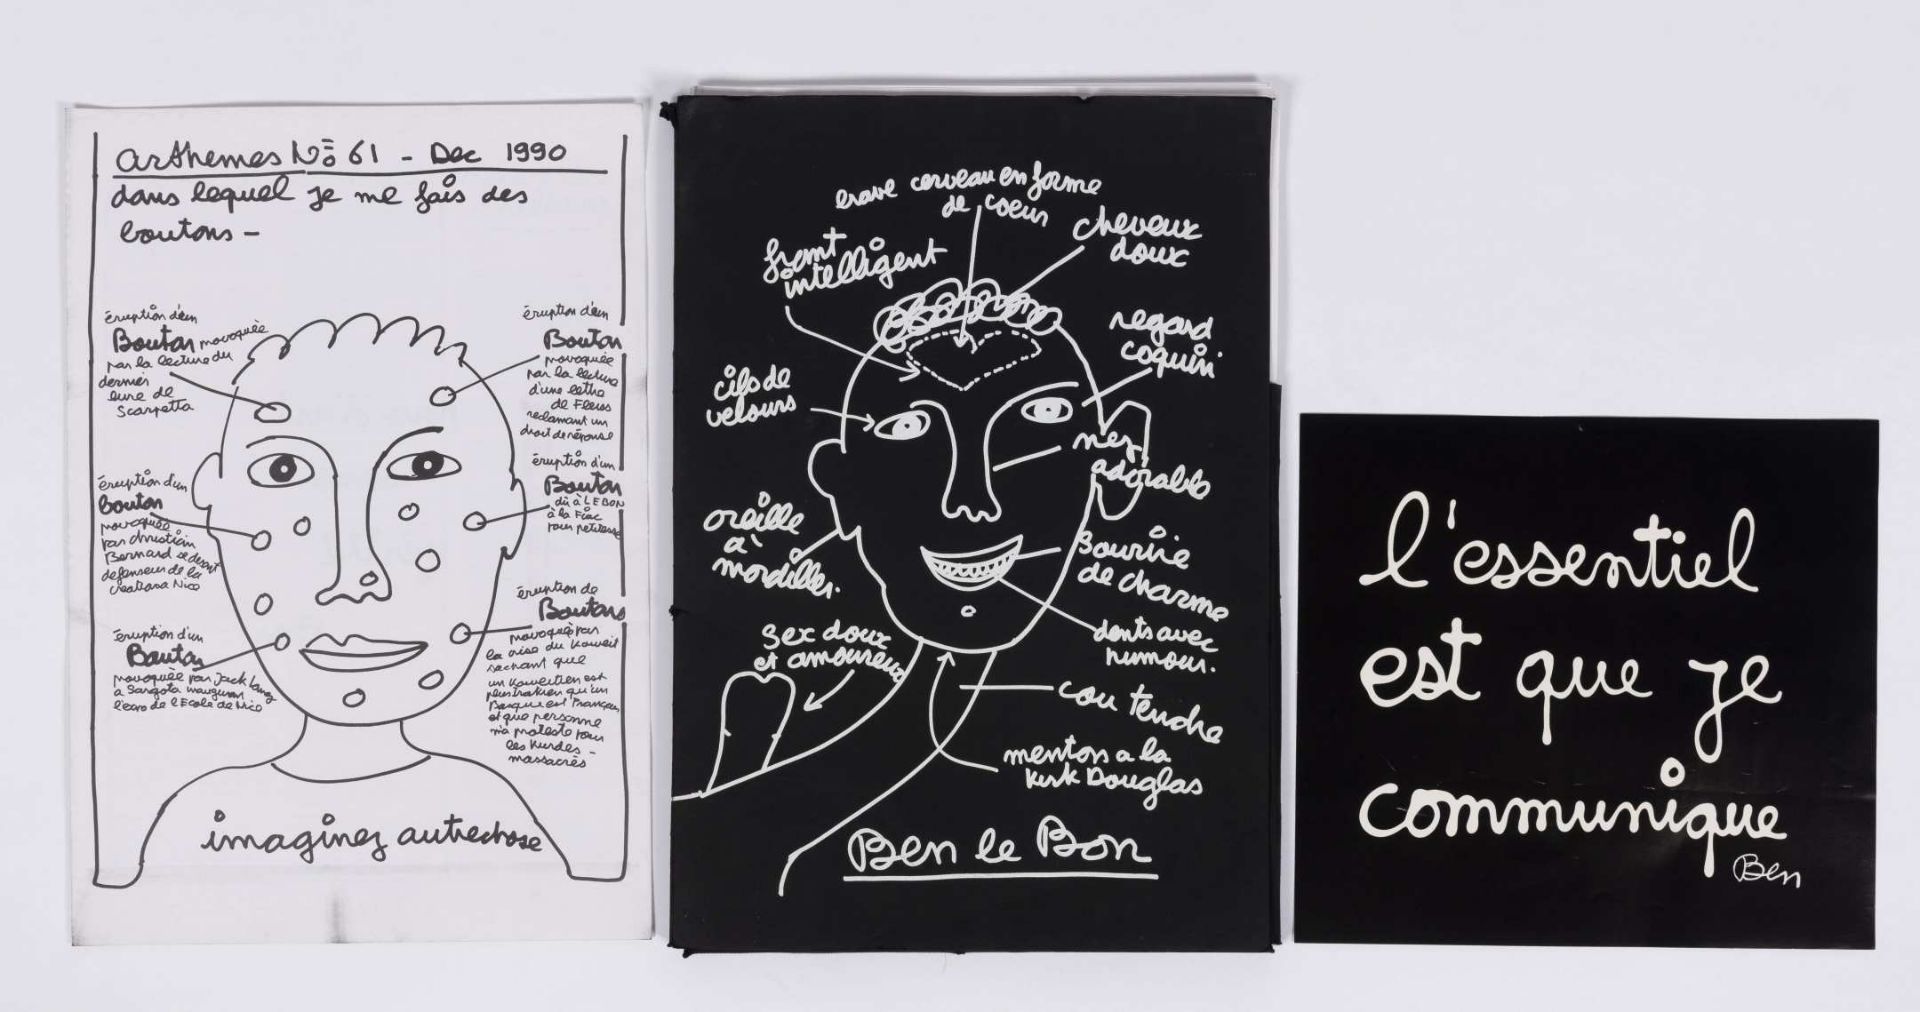 arthemes No 61 - Dec 1990
dans lequel je me fais des
boutons -
éruption d'un
Bouton provoquée
par la lecture du
dernier
livre de
Scarpetta
éruption d'un
Bouton
provoquée
par la lecture
d'une lettre
de Fleiss
reclamant un
droit de réponse
éruption d'un
Bouton
provoquée
par christian
Bernard se disant
defenseur de la
Nice
éruption d'un
Bouton
dû à LEBON
à la Fiac
éruption d'un
Bouton
provoquée par Jack Lang
a
de l'Ecole de Nice
éruption de
Boutons
provoquée par
la crise du Koweit
sachant que
un Koweitien est
plus irakien qu'un
Basque est Français
et que personne
n'a protesté pour
les Kurdes -
massacrés
imaginez autrechose
cerveau en forme
de coeur
cheveux
doux
front
intelligent
regard
coquin
cils de
velours
nez
adorable
oreille
à
mordiller.
Sourire
de charme
dents avec
humour.
sex doux
et amoureux
cou tendre
menton a la
Kirk Douglas
Ben le Bon
l'essentiel
est que je
communique
Ben